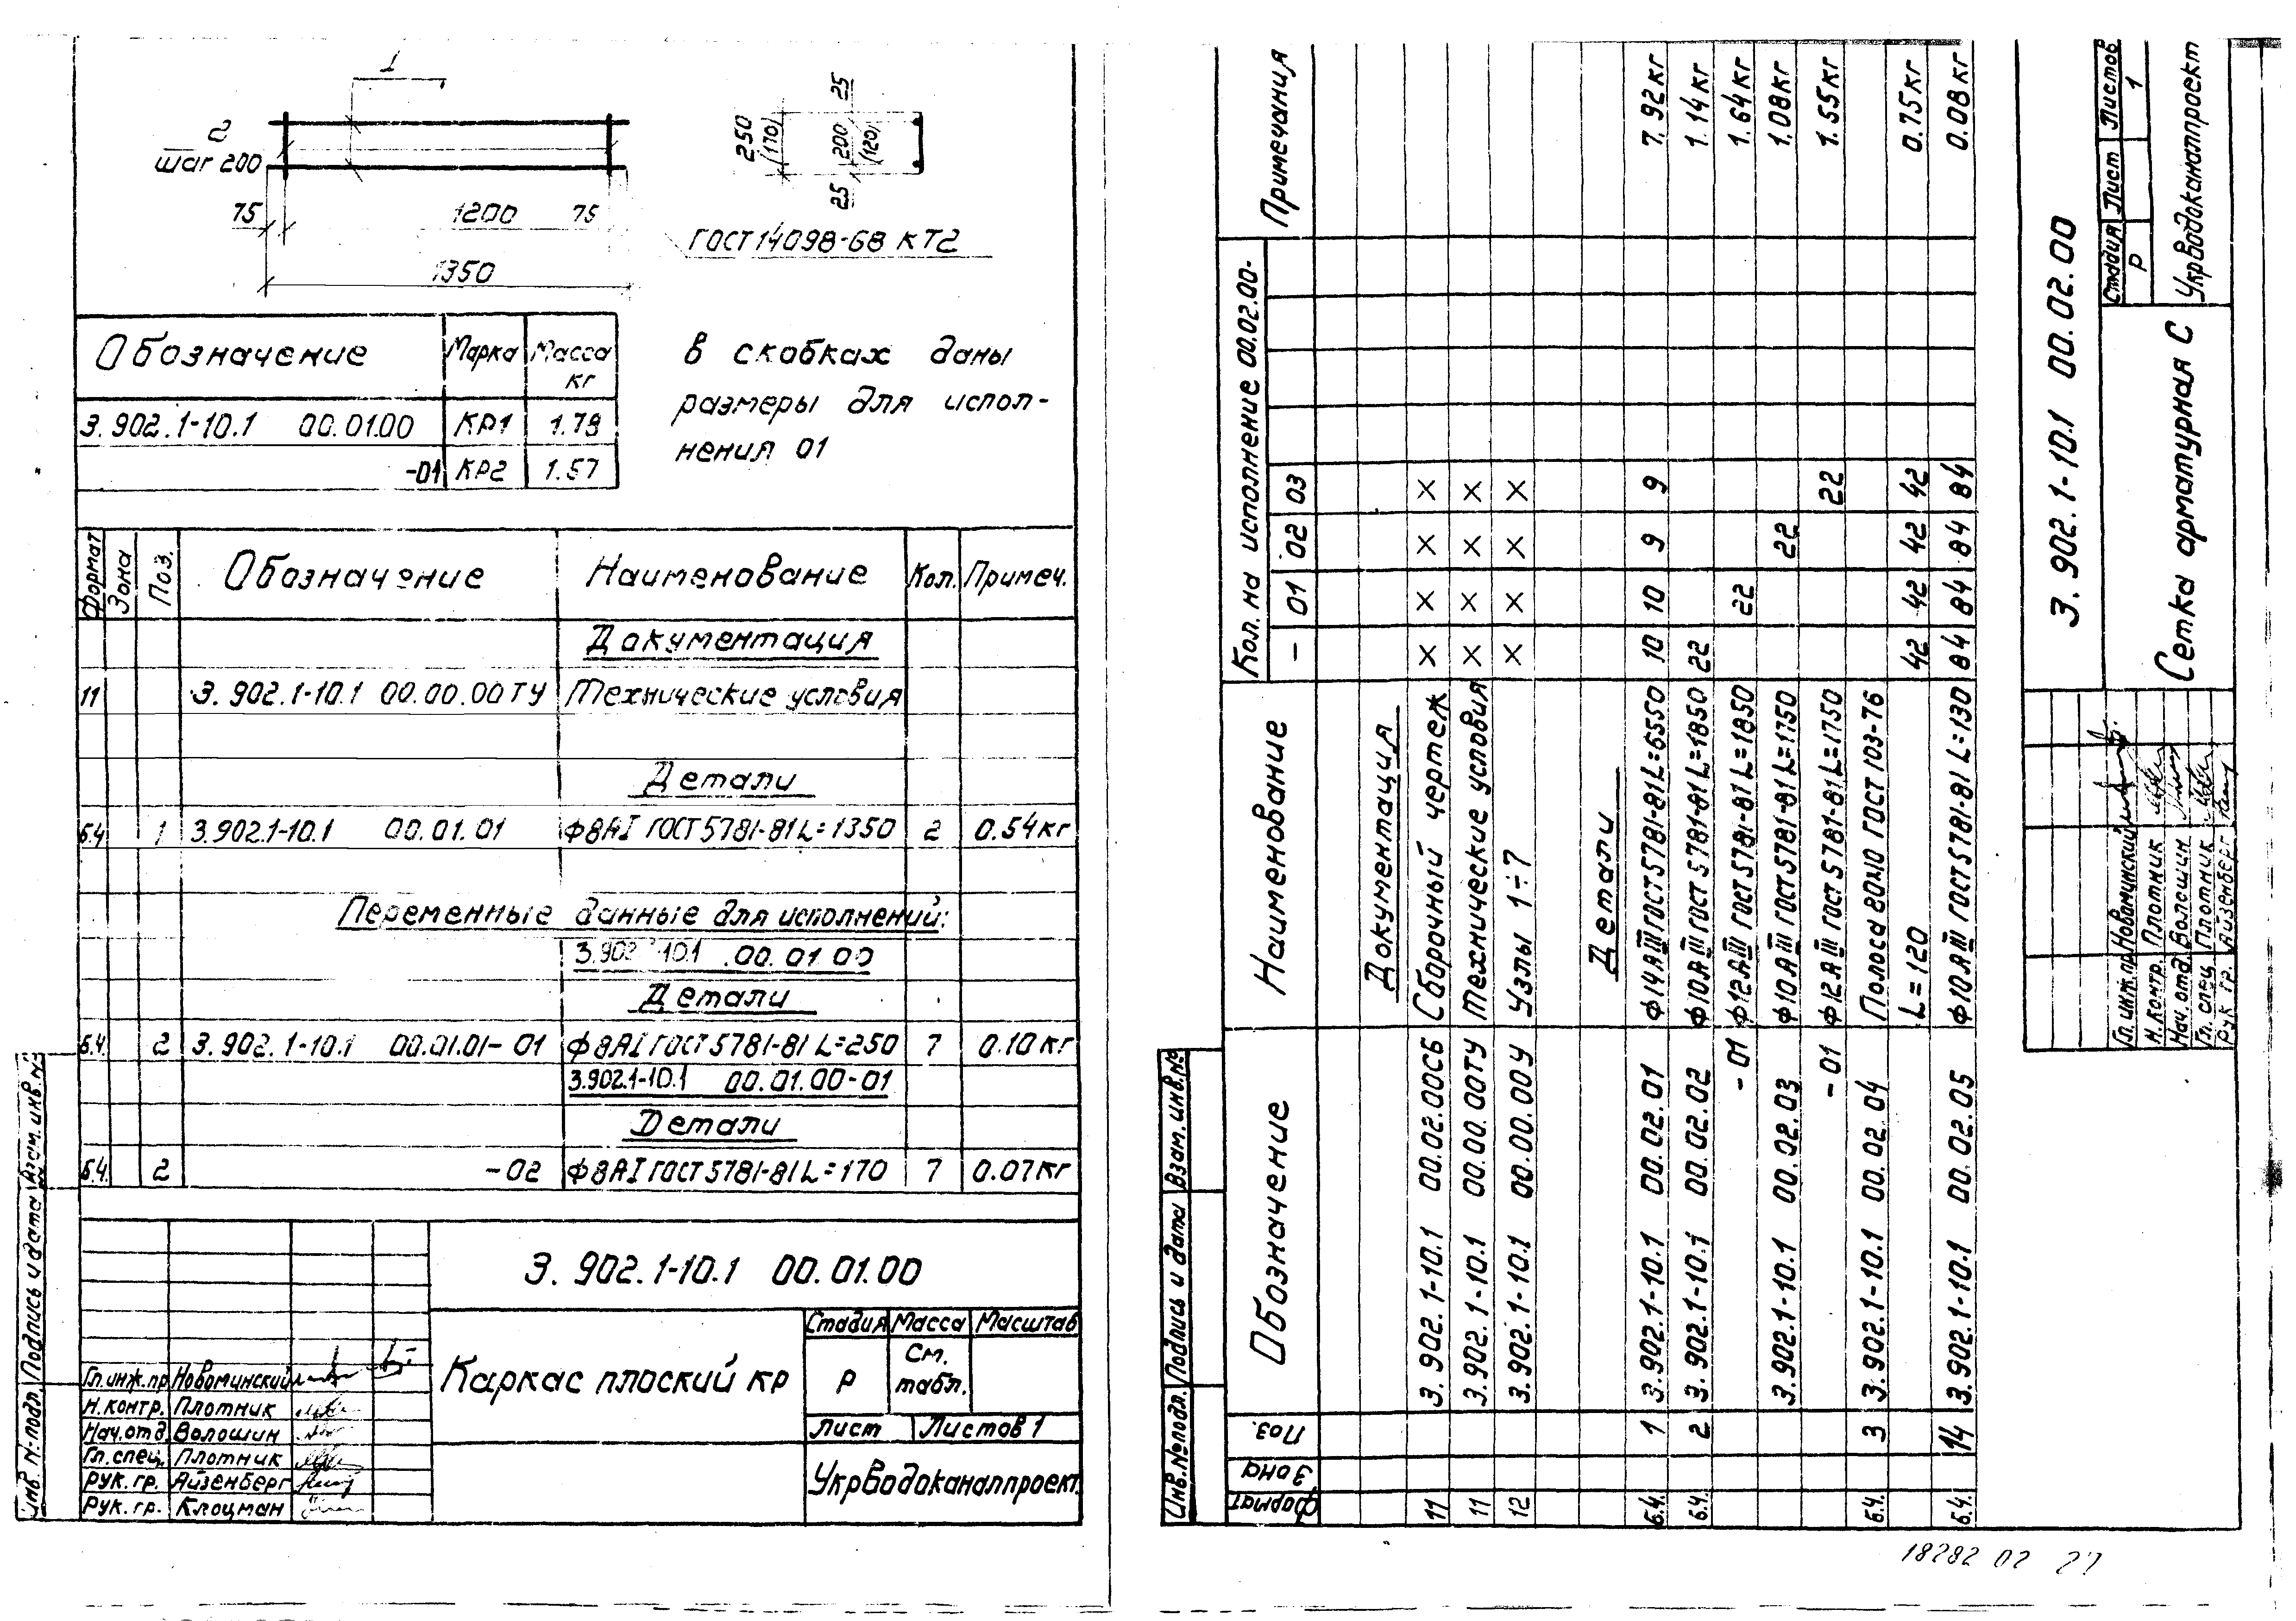 1
2
шаг 200
75
1200
75
1350
250
(170)
25
200
(120)
25
ГОСТ 14098-68 КТ2
Обозначение Марка Масса кг
3.902.1-10.1 00.01.00 КР1 1.78
-01 КР2 1.57
в скобках даны
размеры для испол-
нения 01
Формат Зона Поз. Обозначение Наименование Кол. Примеч.
Документация
11 3.902.1-10.1 00.00.00ТУ Технические условия
Детали
б.ч. 1 3.902.1-10.1 00.01.01 Ф8АI ГОСТ 5781-81 L=1350 2 0.54кг
Переменные данные для исполнений:
3.902.1-10.1 00.01.00
Детали
б.ч. 2 3.902.1-10.1 00.01.01-01 Ф8АI ГОСТ 5781-81 L=250 7 0.10кг
3.902.1-10.1 00.01.00-01
Детали
б.ч. 2 -02 Ф8АI ГОСТ 5781-81 L=170 7 0.07кг
3.902.1-10.1 00.01.00
Каркас плоский КР
Стадия Масса Масштаб
Р См. табл.
Лист Листов 1
Укрводоканалпроект
Гл.инж.пр Новоминский
Н.контр. Плотник
Нач.отд. Волошин
Гл.спец. Плотник
Рук. гр. Айзенберг
Рук. гр. Клоцман
Инв. № подл. Подпись и дата Взам. инв. №
Формат Зона Поз. Обозначение Наименование Кол. на исполнение 00.02.00- Примечания
- 01 02 03
Документация
11 3.902.1-10.1 00.02.00СБ Сборочный чертеж × × × ×
11 3.902.1-10.1 00.00.00ТУ Технические условия × × × ×
12 3.902.1-10.1 00.00.00У Узлы 1÷7 × × × ×
Детали
б.ч. 1 3.902.1-10.1 00.02.01 Ф14АIII ГОСТ 5781-81 L=6550 10 10 9 9 7.92кг
б.ч. 2 3.902.1-10.1 00.02.02 Ф10АIII ГОСТ 5781-81 L=1850 22 1.14кг
-01 Ф12АIII ГОСТ 5781-81 L=1850 22 1.64кг
3.902.1-10.1 00.02.03 Ф10АIII ГОСТ 5781-81 L=1750 22 1.08кг
-01 Ф12АIII ГОСТ 5781-81 L=1750 22 1.55кг
б.ч. 3 3.902.1-10.1 00.02.04 Полоса 80х10 ГОСТ 103-76
L=120 42 42 42 42 0.75кг
б.ч. 14 3.902.1-10.1 00.02.05 Ф10АIII ГОСТ 5781-81 L=130 84 84 84 84 0.08кг
3.902.1-10.1 00.02.00
Сетка арматурная С
Стадия Лист Листов
Р 1
Укрводоканалпроект
Гл.инж.пр. Новоминский
Н.контр. Плотник
Нач.отд. Волошин
Гл.спец. Плотник
Рук. гр. Айзенберг
Инв.№ подл. Подпись и дата Взам. инв.№
18282 02 27